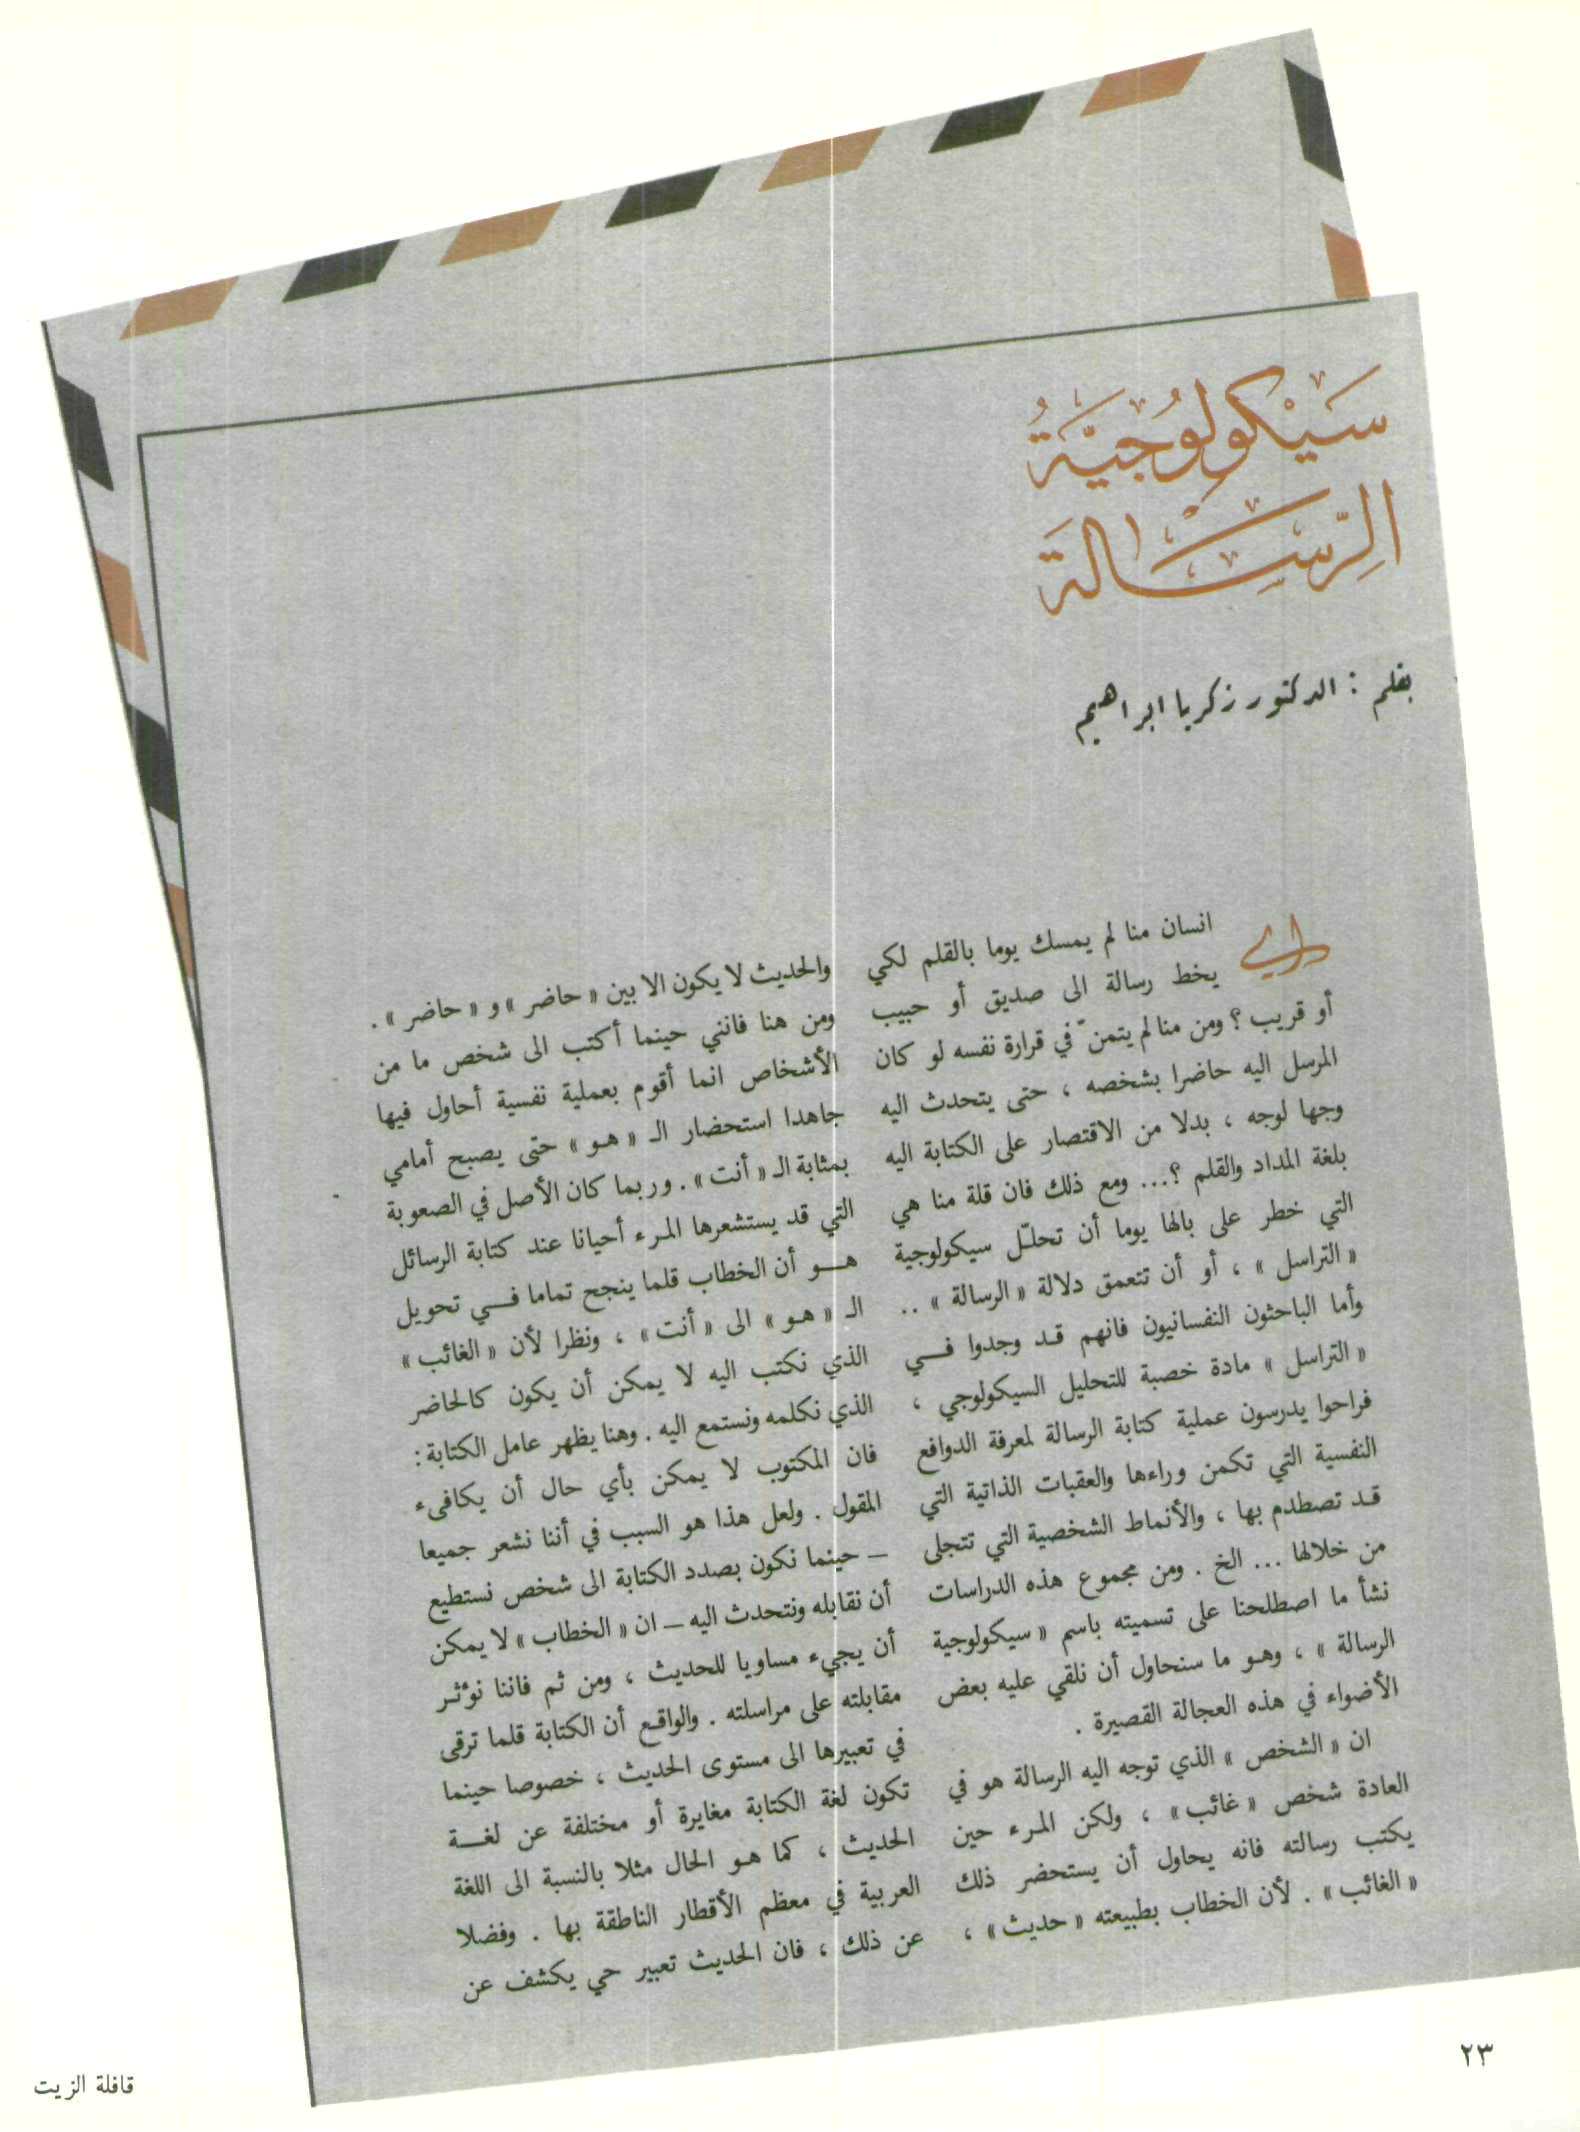 سَيْكولوُجيَّةُ
الرِّسَالَة
بقلم : الدكتور زكريا ابراهيم
أي انسان منا لم يمسك يوما بالقلم لكي
يخط رسالة الى صديق أو حبيب
أو قريب ؟ ومن منا لم يتمنّ في قرارة نفسه لو كان
المرسل اليه حاضرا بشخصه ، حتى يتحدث اليه
وجها لوجه ، بدلا من الاقتصار على الكتابة اليه
بلغة المداد والقلم ؟... ومع ذلك فان قلة منا هي
التي خطر على بالها يوما أن تحلّل سيكولوجية
« التراسل » ، أو أن تتعمق دلالة « الرسالة » ..
وأما الباحثون النفسانيون فانهم قد وجدوا في
« التراسل » مادة خصبة للتحليل السيكولوجي ،
فراحوا يدرسون عملية كتابة الرسالة لمعرفة الدوافع
النفسية التي تكمن وراءها والعقبات الذاتية التي
قد تصطدم بها ، والأنماط الشخصية التي تتجلى
من خلالها ... الخ . ومن مجموع هذه الدراسات
نشأ ما اصطلحنا على تسميته باسم « سيكولوجية
الرسالة » ، وهو ما سنحاول أن نلقي عليه بعض
الأضواء في هذه العجالة القصيرة .
ان « الشخص » الذي توجه اليه الرسالة هو في
العادة شخص « غائب » ، ولكن المرء حين
يكتب رسالته فانه يحاول أن يستحضر ذلك
« الغائب » . لأن الخطاب بطبيعته « حديث » ،
والحديث لا يكون الا بين « حاضر » و « حاضر » .
ومن هنا فانني حينما أكتب الى شخص ما من
الأشخاص انما أقوم بعملية نفسية أحاول فيها
جاهدا استحضار الـ « هو » حتى يصبح أمامي
بمثابة الـ « أنت » . وربما كان الأصل في الصعوبة
التي قد يستشعرها المرء أحيانا عند كتابة الرسائل
هو أن الخطاب قلما ينجح تماما في تحويل
الـ « هو » الى « أنت » ، ونظرا لأن « الغائب »
الذي نكتب اليه لا يمكن أن يكون كالحاضر
الذي نكلمه ونستمع اليه . وهنا يظهر عامل الكتابة :
فان المكتوب لا يمكن بأي حال أن يكافىء
المقول . ولعل هذا هو السبب في أننا نشعر جميعا
– حينما نكون بصدد الكتابة الى شخص نستطيع
أن نقابله ونتحدث اليه – ان « الخطاب » لا يمكن
أن يجيء مساويا للحديث ، ومن ثم فاننا نؤثر
مقابلته على مراسلته . والواقع أن الكتابة قلما ترقى
في تعبيرها الى مستوى الحديث ، خصوصا حينما
تكون لغة الكتابة مغايرة أو مختلفة عن لغة
الحديث ، كما هو الحال مثلا بالنسبة الى اللغة
العربية في معظم الأقطار الناطقة بها . وفضلا
عن ذلك ، فان الحديث تعبير حي يكشف عن
٢٣
قافلة الزيت